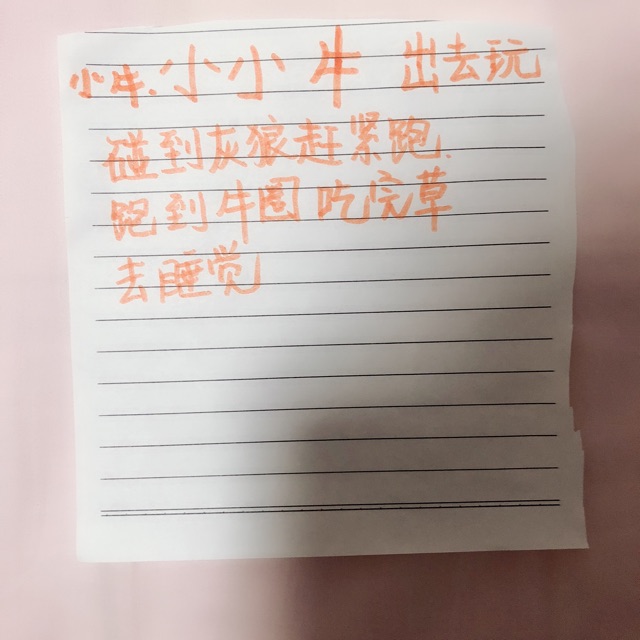 小牛、小小牛 出去玩
碰到灰狼赶紧跑.
跑到牛圈吃完草
去睡觉